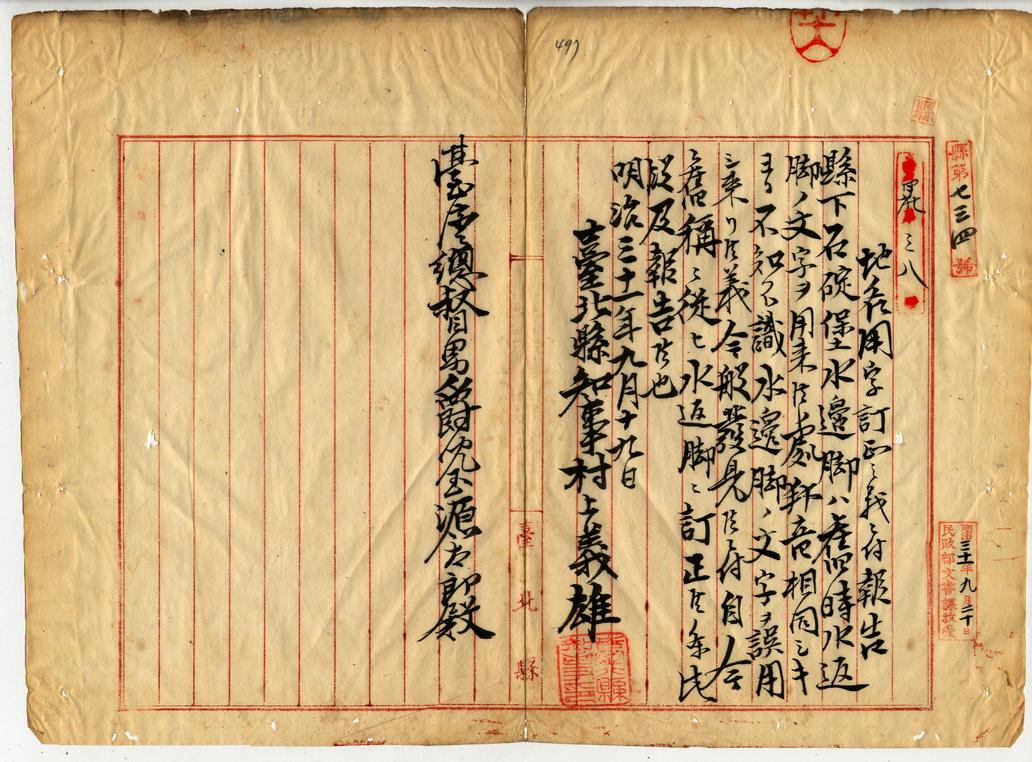 縣第七三四號
地名用字訂正之義ニ付報告
縣下石碇堡水邊脚ハ舊時水返
脚ノ文字ヲ用来候處 音相同シキ
ヨリ不知不識水邊脚ノ文字ヲ誤用
シ来リ候義今般發見候ニ付自今
舊稱ニ從ヒ水返脚ニ訂正候条此
段及報告候也
明治三十一年九月十九日
臺北縣知事村上義雄
臺灣總督男爵兒玉源太郎殿
臺北縣
明治三十一年九月二十日
民政部文書課
497